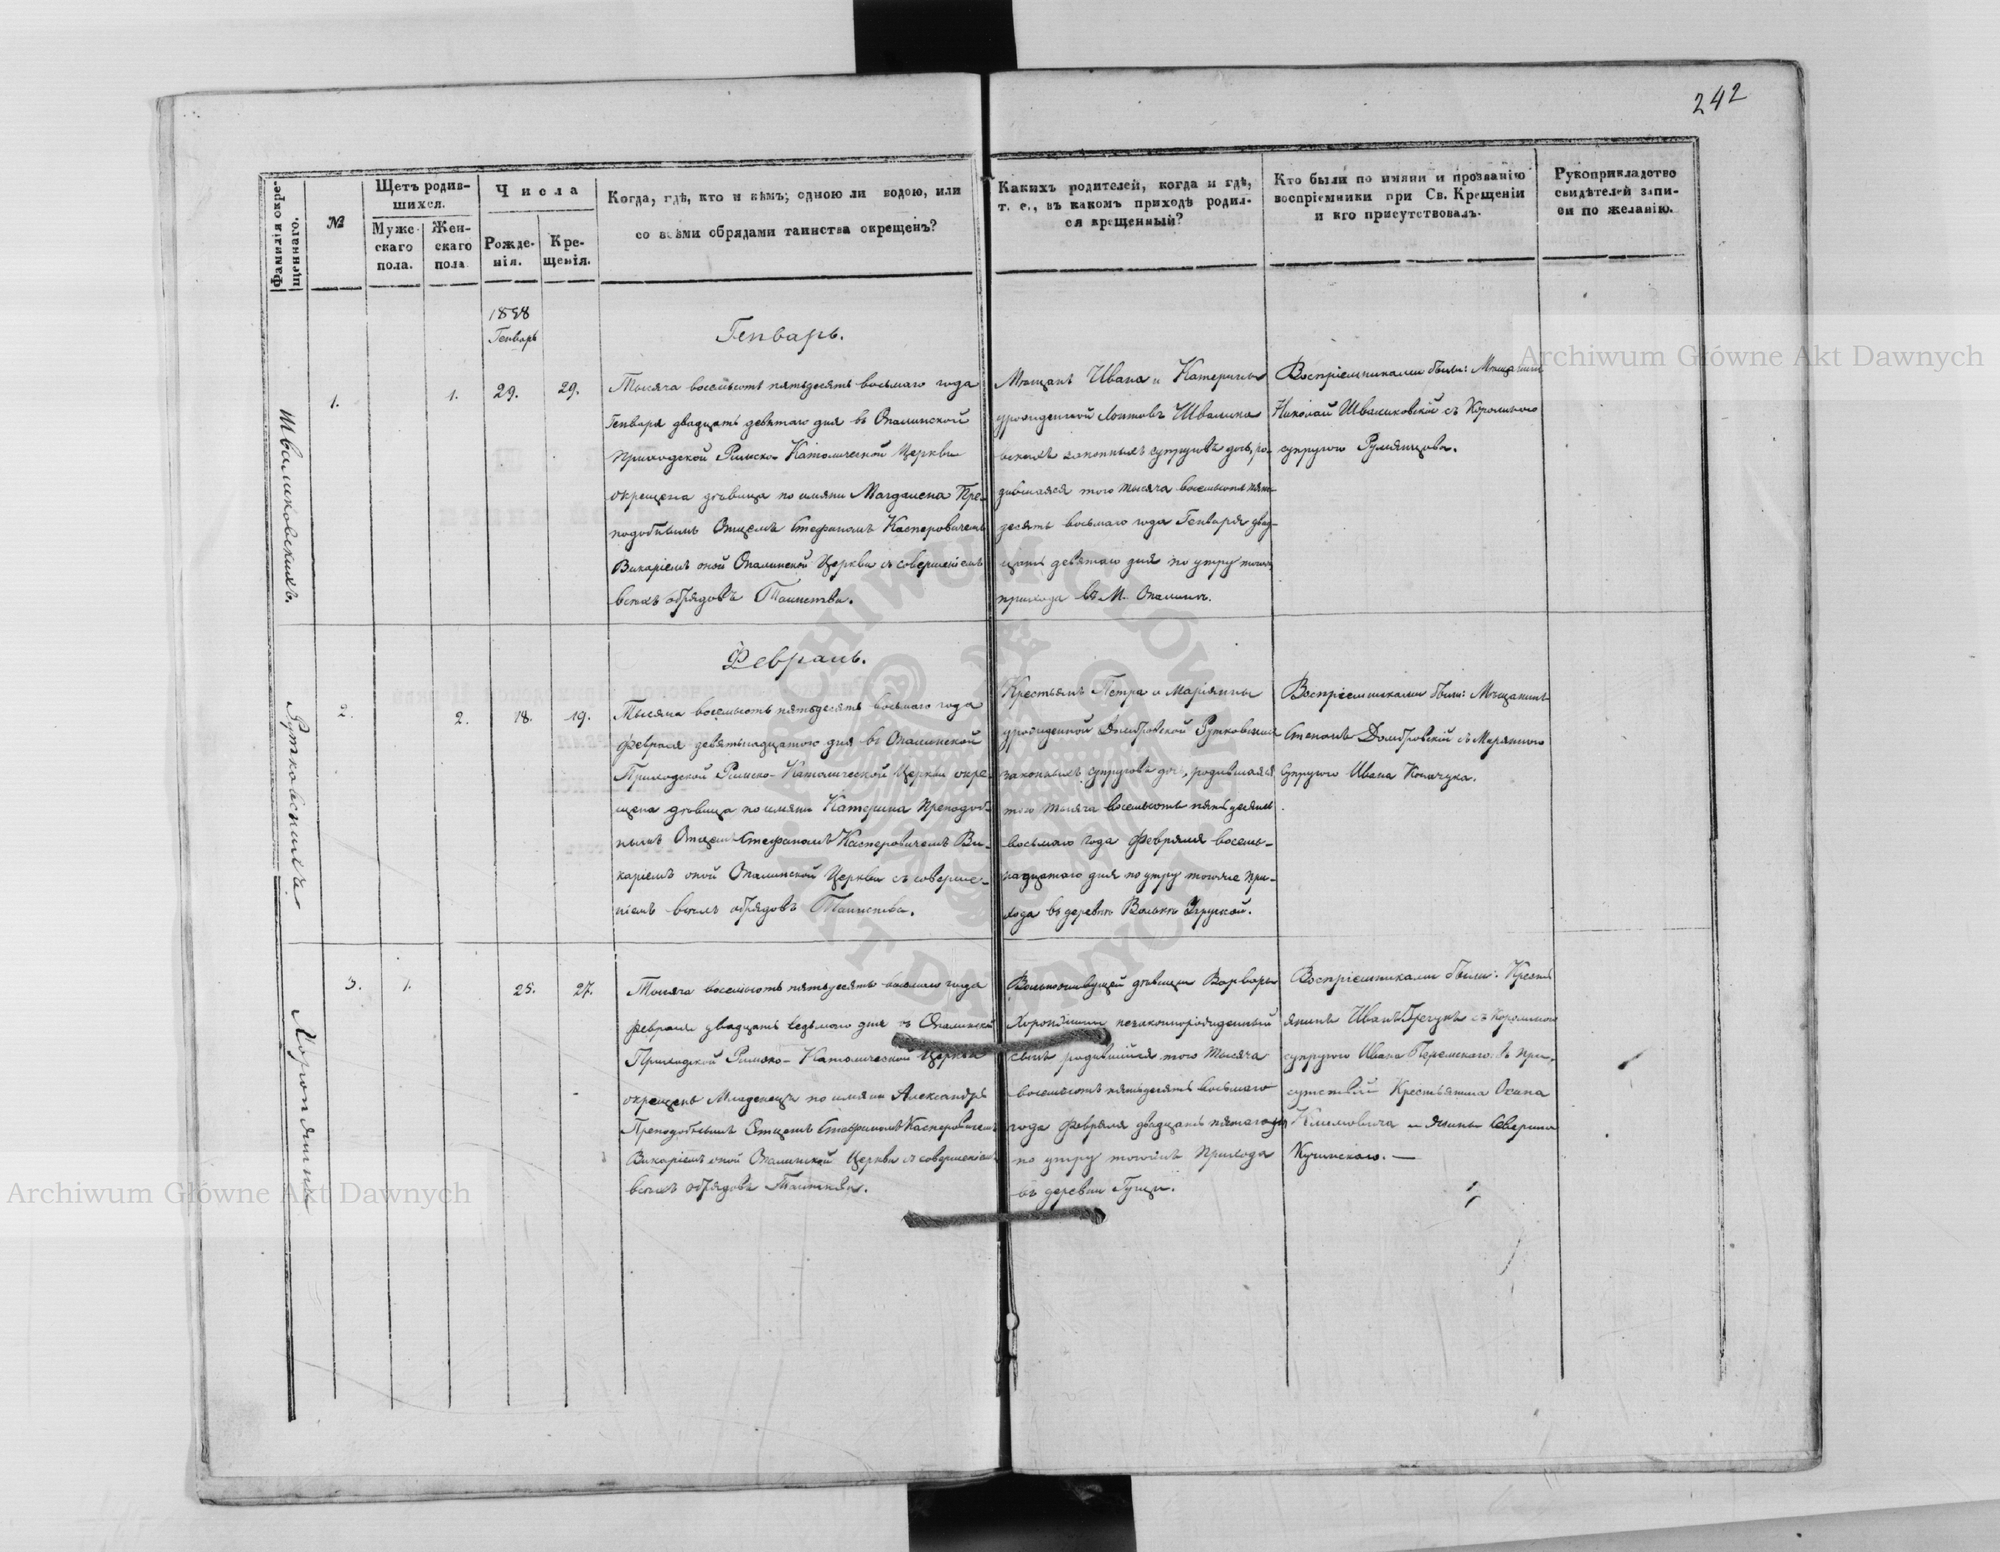 242
Фамилія окре-
щеннаго.
№
Щетъ родив-
шихся.
Муже-
скаго
пола.
Жен-
скаго
пола
Числа
Рожде-
нія.
Кре-
щенія.
Когда, гдѣ, кто и кѣмъ; одною ли водою, или
со всѣми обрядами таинства окрещенъ?
Какихъ родителей, когда и гдѣ,
т. е., въ какомъ приходѣ родил-
ся крещенный?
Кто были по имяни и прозванію
воспріемники при Св. Крещеніи
и кто присутствовалъ.
Рукоприкладство
свидѣтелей запи-
си по желанію.
1858
Генварь
Генварь.
Шваликовскихъ.
1.
1.
29.
29.
Тысяча восемьсотъ пятьдесятъ восьмаго года
Генваря двадцать девятаго дня въ Опалинской
Приходской Римско-Католической Церкви
окрещена дѣвица по имяни Магдалена Пре-
подобнымъ Отцемъ Стефаномъ Касперовичемъ
Викаріемъ оной Опалинской Церкви съ совершеніемъ
всехъ обрядовъ Таинства.
Мѣщанъ Ивана и Катерины
урожденной Шваликов-
скихъ законныхъ супруговъ дочь, ро-
дившаяся того тысяча восемьсотъ пять-
десятъ восьмаго года Генваря двад-
цать девятаго дня по утру тогожъ
прихода въ М. Опалинъ.
Воспріемниками были: Мещанинъ
Николай Шваликовскій съ Королиною
супругою Румянцова.
Февраль.
Рутковскихъ.
2.
2.
18.
19.
Тысяча восемьсотъ пятьдесятъ восьмаго года
Февраля девятьнадцатаго дня въ Опалинской
Приходской Римско-Католической Церкви окре-
щена дѣвица по имяни Катерина Преподоб-
нымъ Отцемъ Стефаномъ Касперовичемъ Ви-
каріемъ оной Опалинской Церкви съ соверше-
ніемъ всехъ обрядовъ Таинства.
Крестьянъ Петра и Маріянны
урожденной Домбровской Рутковскихъ
законныхъ супруговъ дочь, родившаяся
того тысяча восемьсотъ пятьдесятъ
восьмаго года Февраля восемь-
надцатаго дня по утру тогоже при-
хода въ деревнѣ Волькѣ Угруской.
Воспріемниками были: Мѣщанинъ
Степанъ Домбровскій съ Маріянною
Супругою Ивана Копачука.
3.
1.
25.
27.
Тысяча восемьсотъ пятьдесятъ восьмаго года
Февраля двадцать седьмаго дня въ Опалинской
Приходской Римско-Католической Церкви
окрещенъ Младенецъ по имяни Александръ
Преподобнымъ Отцемъ Стефаномъ Касперовичемъ
Викаріемъ оной Опалинской Церкви съ совершеніемъ
всехъ обрядовъ Таинства.
Вольноживущей дѣвицы Варвары
незаконнорожденный
сынъ родившійся того тысяча
восемьсотъ пятьдесятъ восьмаго
года Февраля двадцать пятаго дня
по утру тогожъ Прихода
въ деревни Гущи.
Воспріемниками были: Кресть-
янинъ Иванъ съ Королиною
супругою Ивана въ при-
сутствіи Крестьянина Осипа
Климовича и Северина
Кучинскаго. —
Archiwum Główne Akt Dawnych
Archiwum Główne Akt Dawnych
ARCHIWUM GŁÓWNE
AKT DAWNYCH